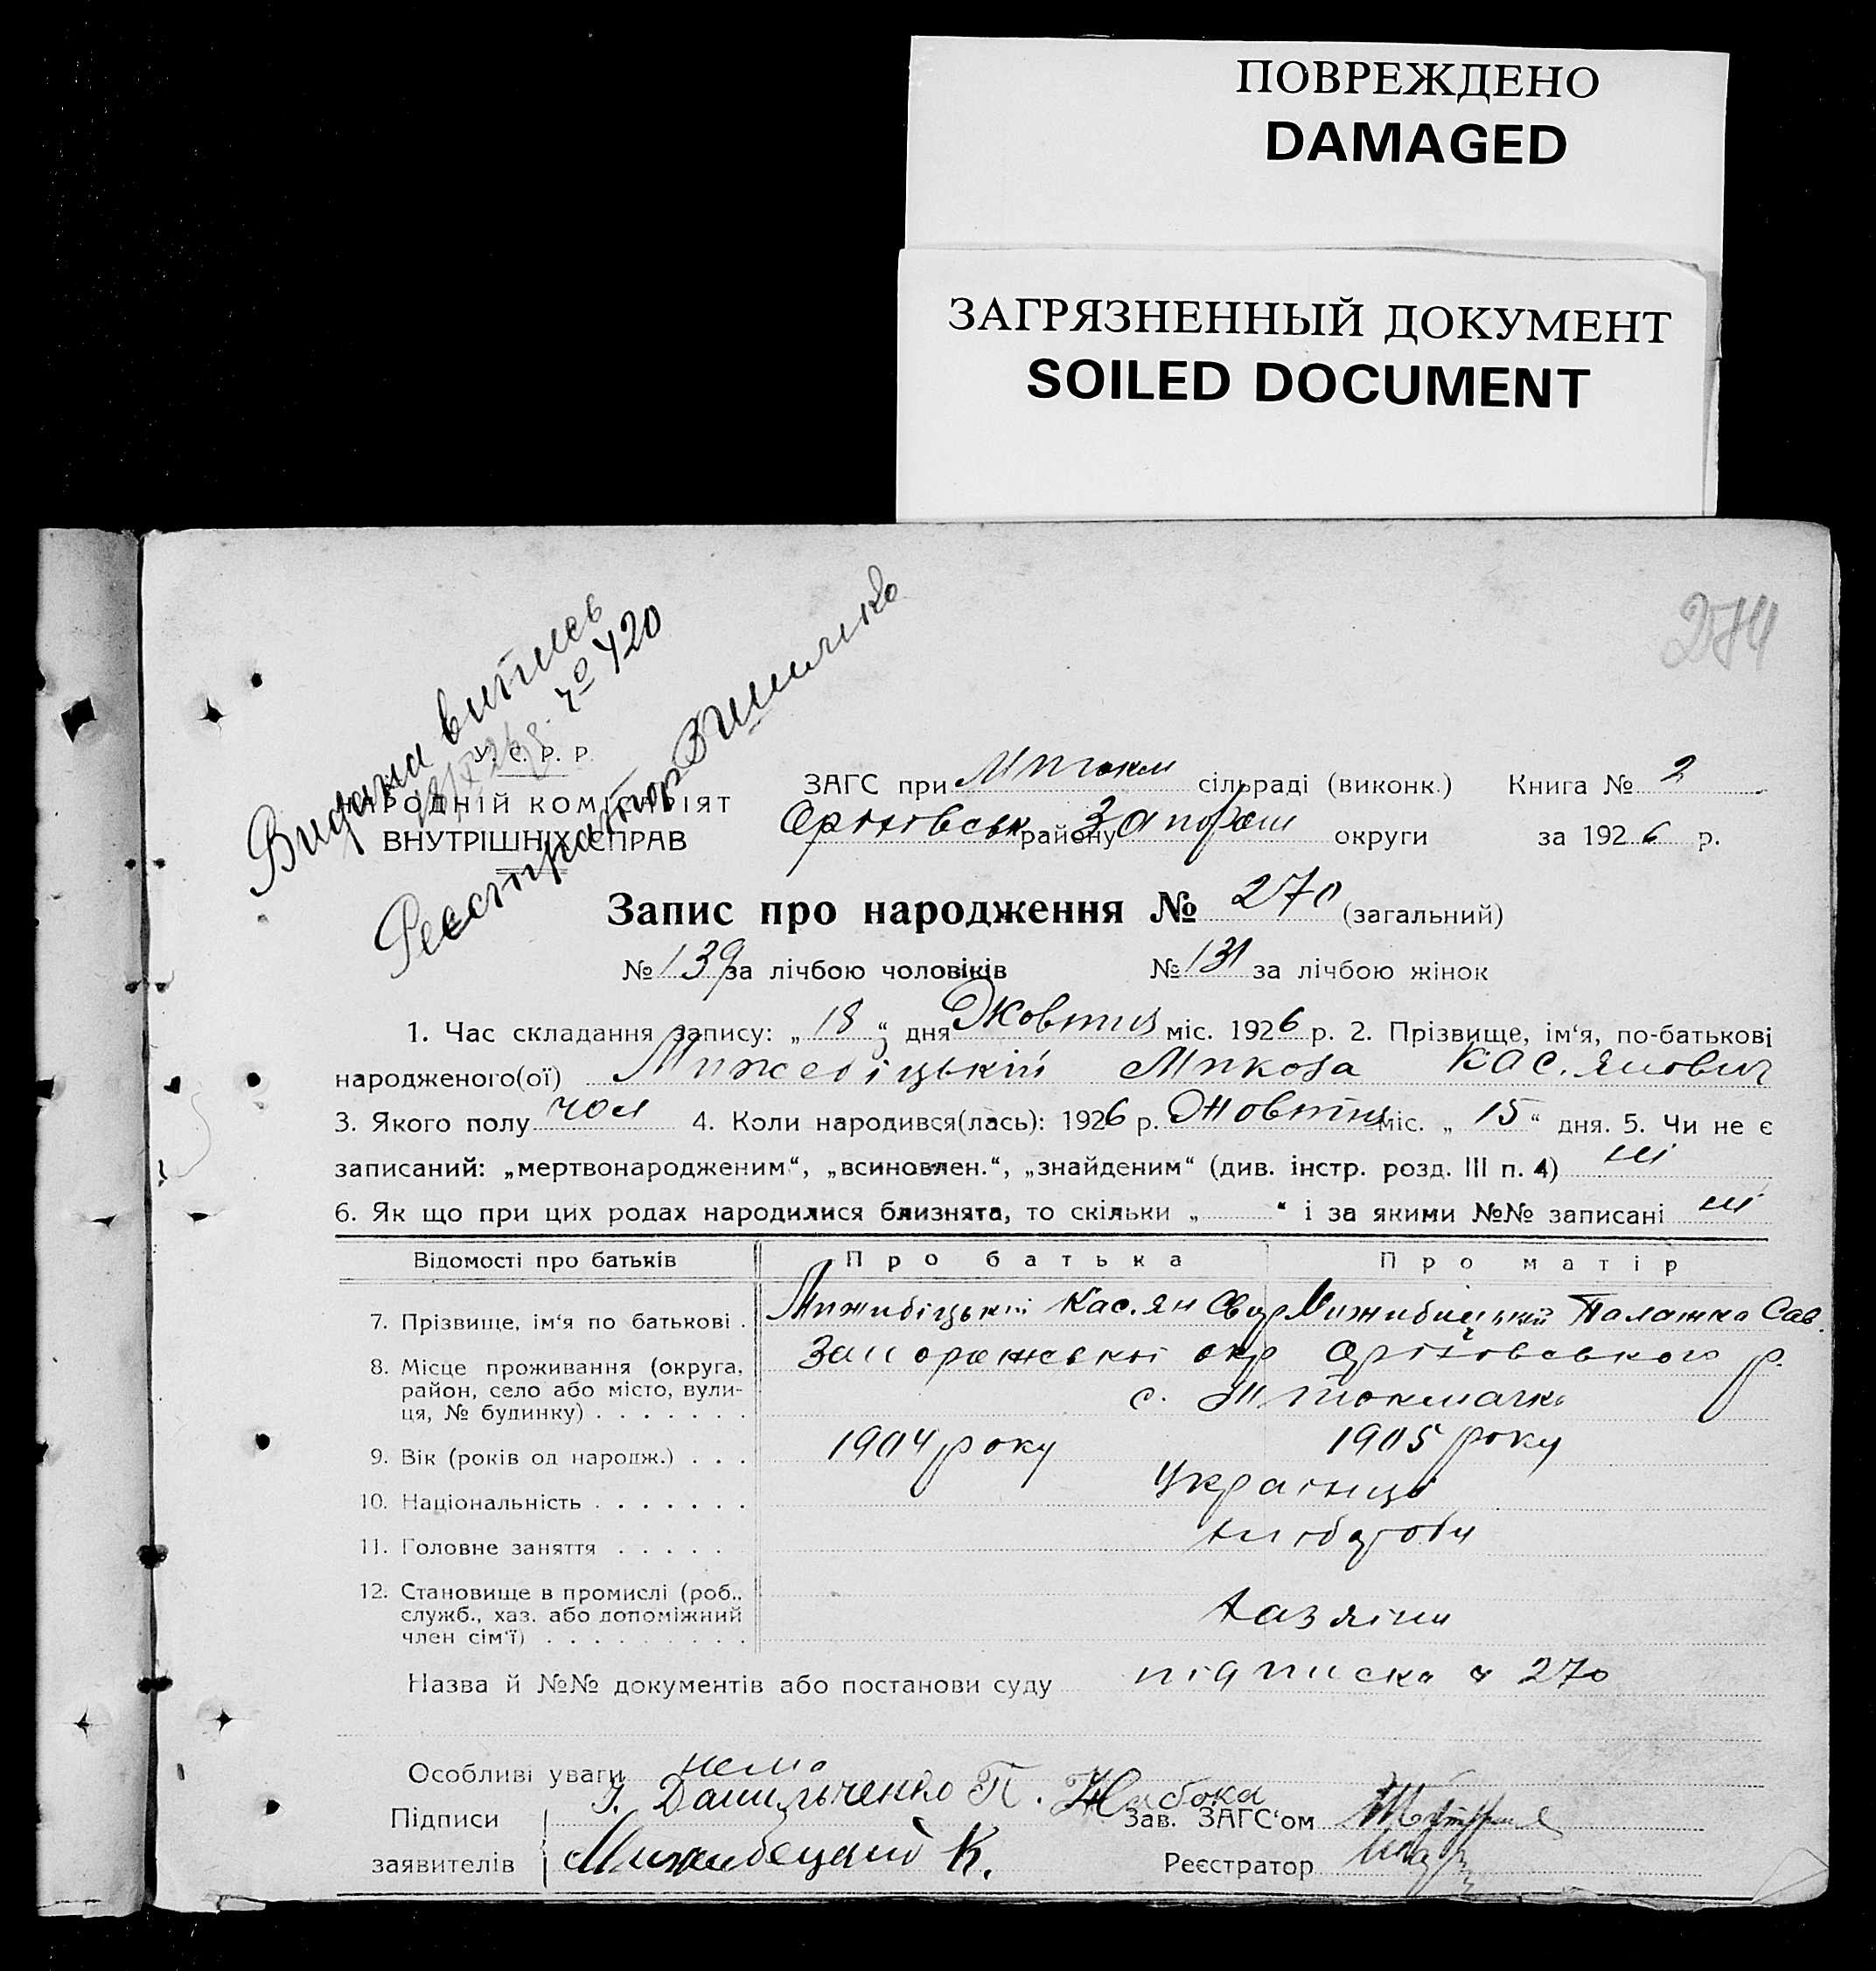 ПОВРЕЖДЕНО
DAMAGED
ЗАГРЯЗНЕННЫЙ ДОКУМЕНТ
SOILED DOCUMENT
274
Видана витпсь
№ 420
Реєстратор
У. С. Р. Р.
НАРОДНІЙ КОМІСАРІЯТ
ВНУТРІШНІХ СПРАВ
ЗАГС при М Токм сільраді (виконк.) Книга № 2
Оріхівськ району Запорож округи за 1926 р.
Запис про народження № 270 (загальний)
№ 139 за лічбою чоловіків № 131 за лічбою жінок
1. Час складання запису: „ 18 “ дня Жовтня міс. 1926 р. 2. Прізвище, ім‘я, по-батькові
народженого(ої) Микола Кас.янович
3. Якого полу чол 4. Коли народився(лась): 1926 р. Жовтня міс. „ 15 “ дня. 5. Чи не є
записаний: „мертвонародженим“, „всиновлен.“, „знайденим“ (див. інстр. розд. III п. 4) ні
6. Як що при цих родах народилися близнята, то скільки „ “ і за якими №№ записані ні
Відомості про батьків Про батька Про матір
7. Прізвище, ім‘я по батькові . Мижибіцькій Кас.ян Палажка Сав.
8. Місце проживання (округа, район, село або місто, вулиця, № будинку) Запоражські окр Оріховского р.
с. М Токмачка
9. Вік (років од народж.) . . . 1904 року 1905 року
10. Національність . . . . . . . Українці
11. Головне заняття . . . . . хлібороби
12. Становище в промислі (роб., служб., хаз. або допоміжний член сім‘ї) хазяіни
Назва й №№ документів або постанови суду підписка ч 270
Особливі уваги нема
Підписи заявителів Данильченко П. Набока
Мижибецкий К.
Зав. ЗАГС‘ом
Реєстратор